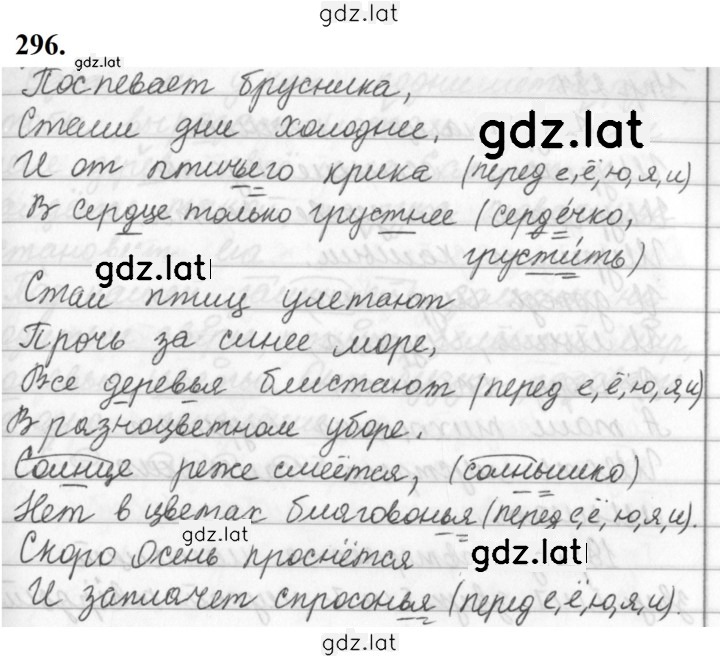 gdz.lat
296.
gdz.lat
Поспевает брусника,
Стали дни холоднее,
gdz.lat
И от птичьего крика (перед е,ё,ю,я,и)
В сердце только грустнее (сердечко,
грустить)
gdz.lat
Стаи птиц улетают
Прочь за синее море,
Все деревья блистают (перед е,ё,ю,я,и)
В разноцветном уборе.
Солнце реже смеётся, (солнышко)
Нет в цветах благовонья (перед е,ё,ю,я,и).
gdz.lat
Скоро Осень проснётся
gdz.lat
И заплачет спросонья (перед е,ё,ю,я,и).
gdz.lat